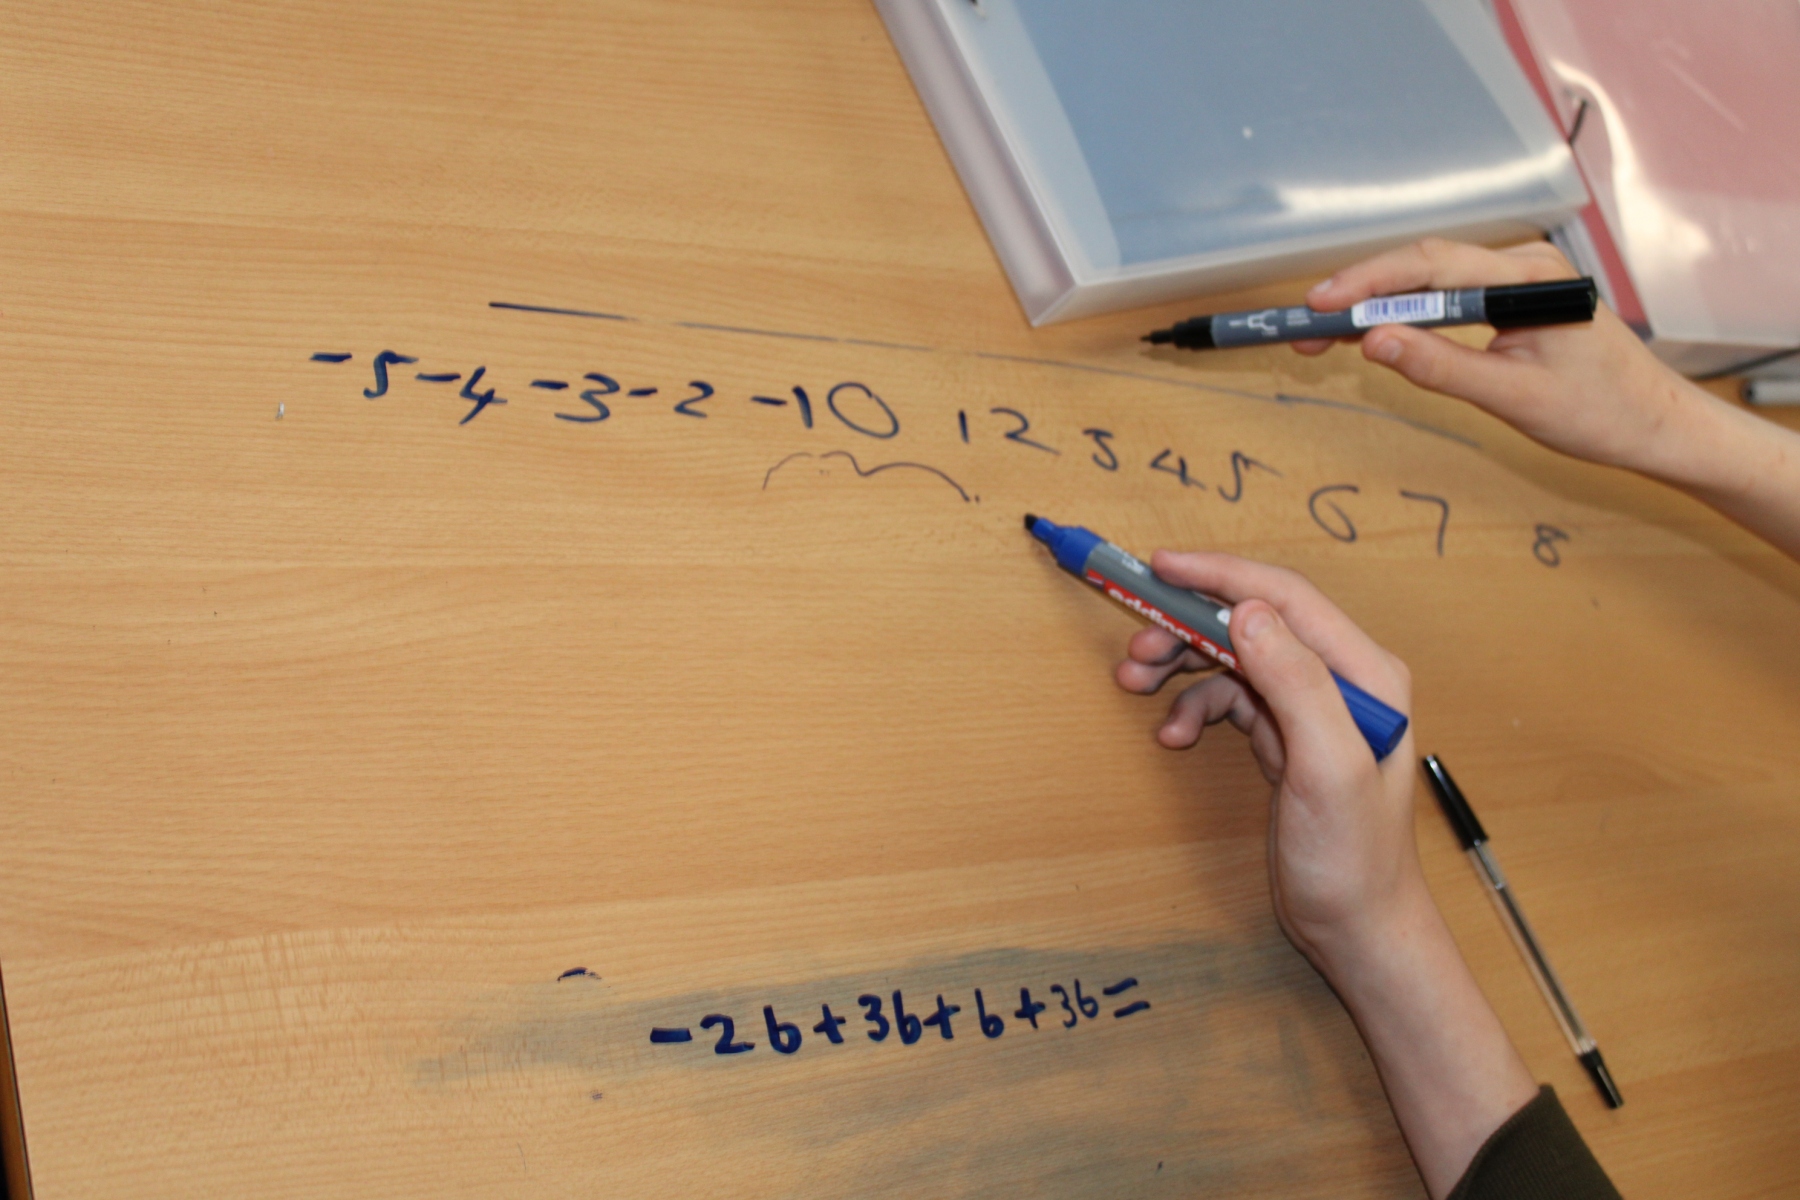 -5 -4 -3 -2 -1 0 1 2 3 4 5 6 7 8
edding
-2b+3b+b+3b=